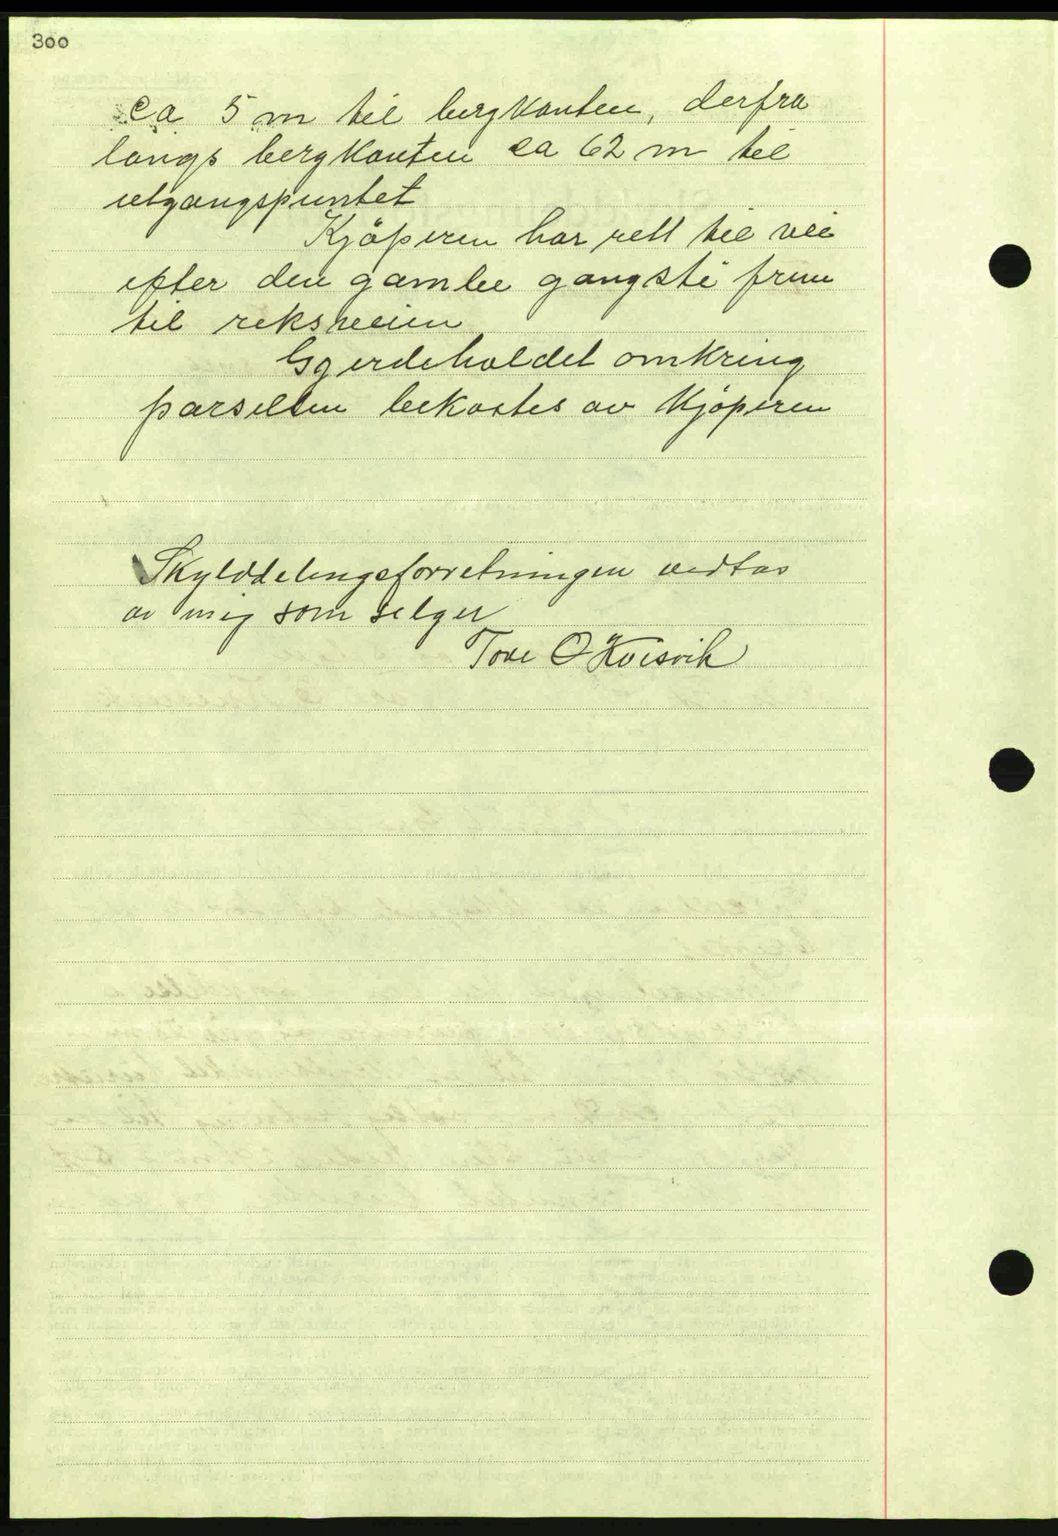 300
ca 5 m til bergkanten, derfra
langs bergkanten ca 62 m til
utgangspuntet
Kjøperen har rett til vei
efter den gamle gangsti frem
til reksveien
Gjerdeholdet omkring
parsellen bekostes av Kjøperen
Skylddelingsforretningen vedtas
av mig som selger
Tore O Kvisvik